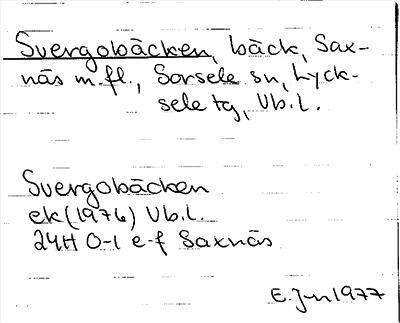 Svergobäcken, bäck, Sax-
näs m.fl., Sorsele sn, Lyck-
sele tg, Vb.l.
Svergobäcken
ek (1976) Vb.l.
24H 0-1 e-f Saxnäs
E. Jn 1977